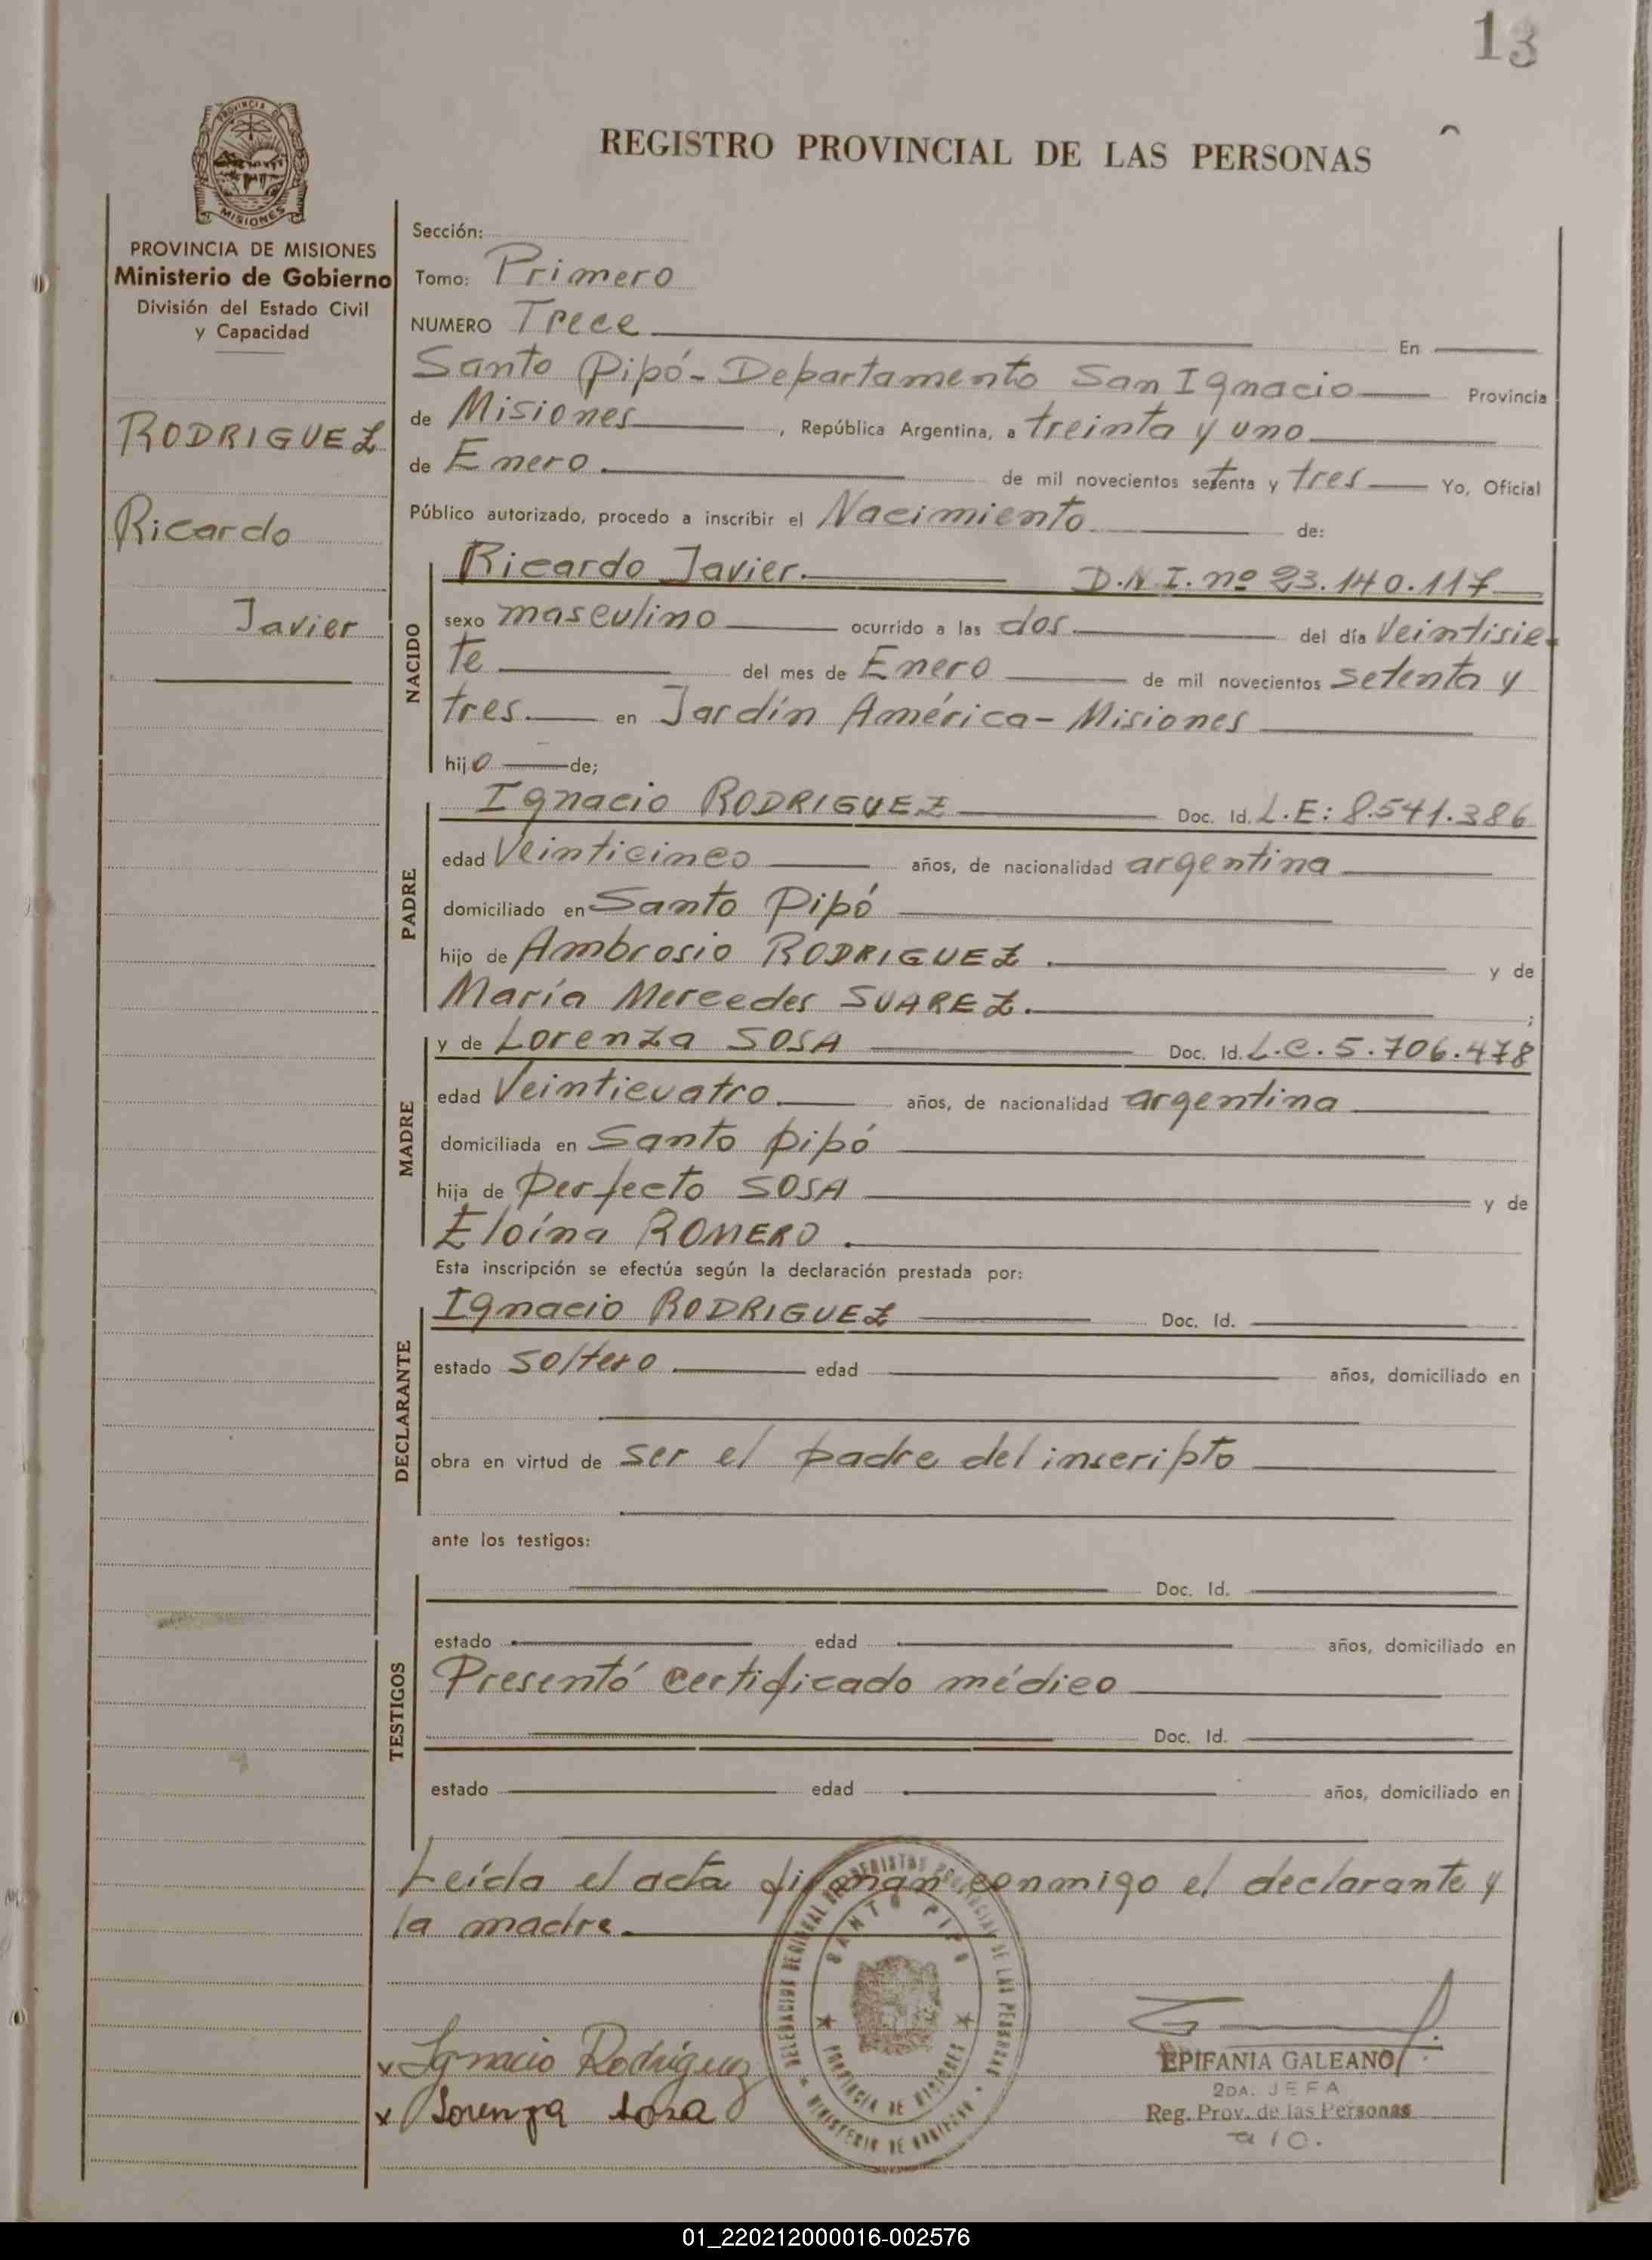 13
REGISTRO PROVINCIAL DE LAS PERSONAS
PROVINCIA
MISIONES
PROVINCIA DE MISIONES
Ministerio de Gobierno
División del Estado Civil
y Capacidad
RODRIGUEZ
Ricardo
Javier
Sección:
Tomo: Primero
NUMERO Trece En
Santo Pipó - Departamento San Ignacio Provincia
de Misiones, República Argentina, a treinta y uno
de Enero. de mil novecientos setenta y tres Yo, Oficial
Público autorizado, procedo a inscribir el Nacimiento de:
NACIDO
Ricardo Javier. D.N.I. nº 23.140.117
sexo masculino ocurrido a las dos del día Veintisie-
te del mes de Enero de mil novecientos setenta y
tres. en Jardín América - Misiones
hijo de;
PADRE
Ignacio RODRIGUEZ Doc. Id. L.E: 8.541.386
edad Veinticinco años, de nacionalidad argentina
domiciliado en Santo Pipó
hijo de Ambrosio RODRIGUEZ. y de
María Mercedes SUAREZ. ;
MADRE
y de Lorenza SOSA Doc. Id. L.C. 5.706.478
edad Veinticuatro. años, de nacionalidad argentina
domiciliada en Santo pipó
hija de Perfecto SOSA y de
Eloína ROMERO.
Esta inscripción se efectúa según la declaración prestada por:
DECLARANTE
Ignacio RODRIGUEZ Doc. Id.
estado soltero. edad años, domiciliado en
obra en virtud de ser el padre del inscripto
ante los testigos:
TESTIGOS
Doc. Id.
estado edad años, domiciliado en
Presentó certificado médico
Doc. Id.
estado edad años, domiciliado en
Leída el acta firman conmigo el declarante y
la madre.
DELEGACION REGISTRO PROVINCIAL DE LAS PERSONAS
SANTO PIPO
PROVINCIA DE MISIONES
MINISTERIO DE GOBIERNO
x Ignacio Rodriguez
x Lorenza Sosa
EPIFANIA GALEANO
2DA. JEFA
Reg. Prov. de las Personas
a/c.
01_220212000016-002576